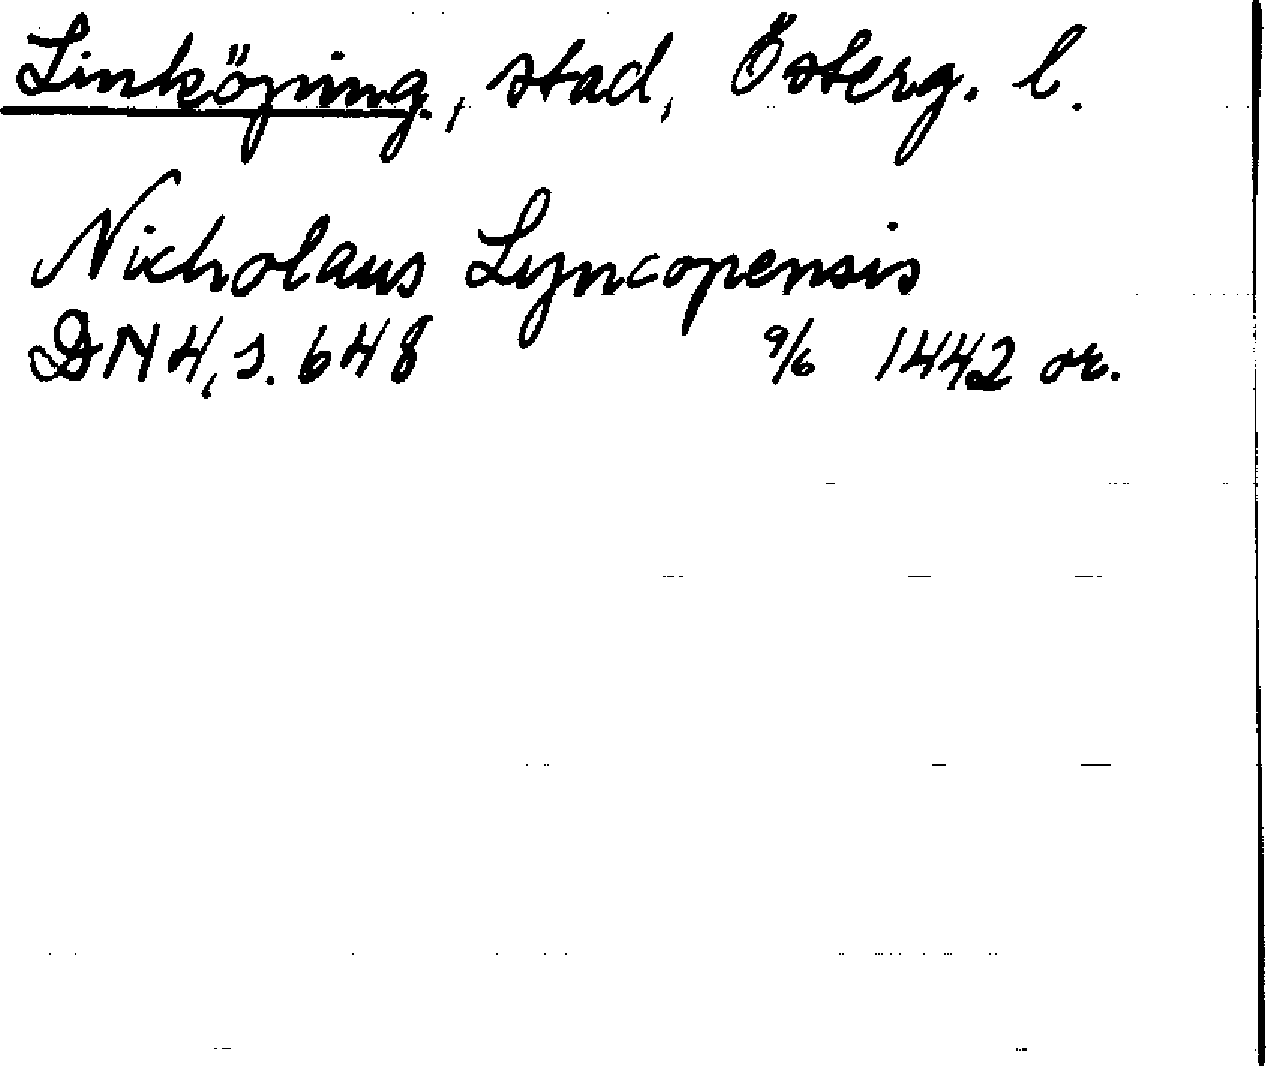 Linköping, stad, Österg. l.
Nicholaus Lyncopensis
DN 4, s. 648 9/6 1442 or.